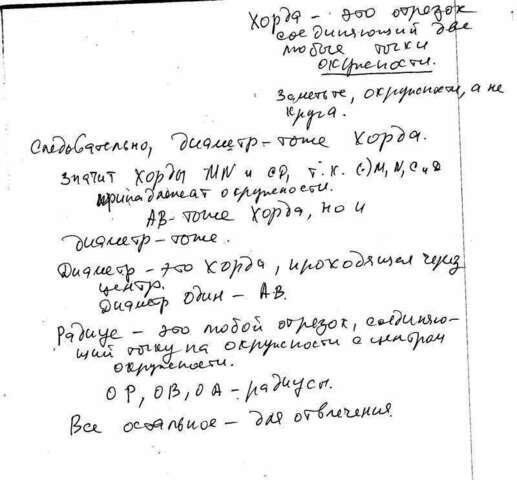 Хорда - это отрезок
соединяющий две
любые точки
окружности.
Заметьте, окружности, а не
круга.
Следовательно, диаметр-тоже хорда.
Значит хорды MN и CD, т.к. (·) M, N, C и D
принадлежат окружности.
AB-тоже хорда, но и
диаметр-тоже.
Диаметр - это хорда, проходящая через
центр.
Диаметр один - AB.
Радиус - это любой отрезок, соединяю-
щий точку на окружности с центром
окружности.
OP, OB, OA - радиусы.
Все остальное - для отвлечения.